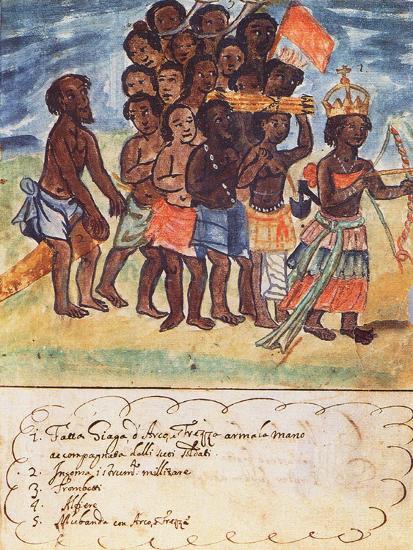 1. Fatta Giaga, d'Arco, e Frezza arma la mano
accompagnata dalli suoi Soldati.
2. Ingoma, istrum: millitare
3. Trombetti
4. Alfiere
5. Mubanda con Arco, e Frezza